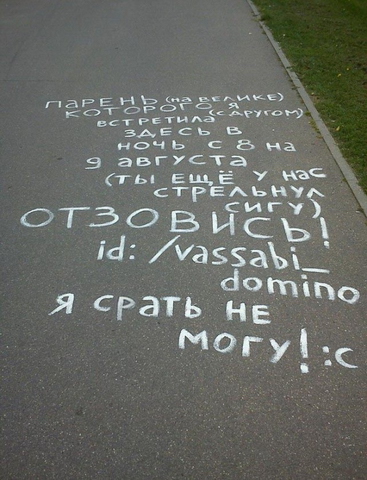 ПАРЕНЬ (НА ВЕЛИКЕ)
КОТОРОГО Я (С ДРУГОМ)
ВСТРЕТИЛА
ЗДЕСЬ В
НОЧЬ С 8 НА
9 АВГУСТА
(ТЫ ЕЩЁ У НАС
СТРЕЛЬНУЛ
СИГУ)
ОТЗОВИСЬ!
id: /vassabi_
domino
Я СРАТЬ НЕ
МОГУ! :С